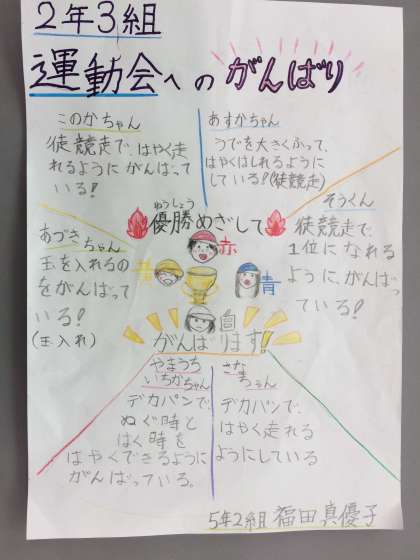 2年3組
運動会へのがんばり
このかちゃん
徒競走で、はやく走
れるようにがんばって
いる!
あすかちゃん
うでを大きくふって、
はやくはしれるように
している!(徒競走)
そうくん
徒競走で、
1位になれる
ように、がんばっ
ている!
あづきちゃん
玉を入れるの
をがんばって
いる!
(玉入れ)
ゆうしょう
優勝めざして
赤
黄
青
白
がんばります!
やまうち
いちかちゃん
デカパンで、
ぬぐ時と
はく時を
はやくできるように
がんばっている。
デカパンで、
はやく走れる
ようにしている
5年2組 福田真優子